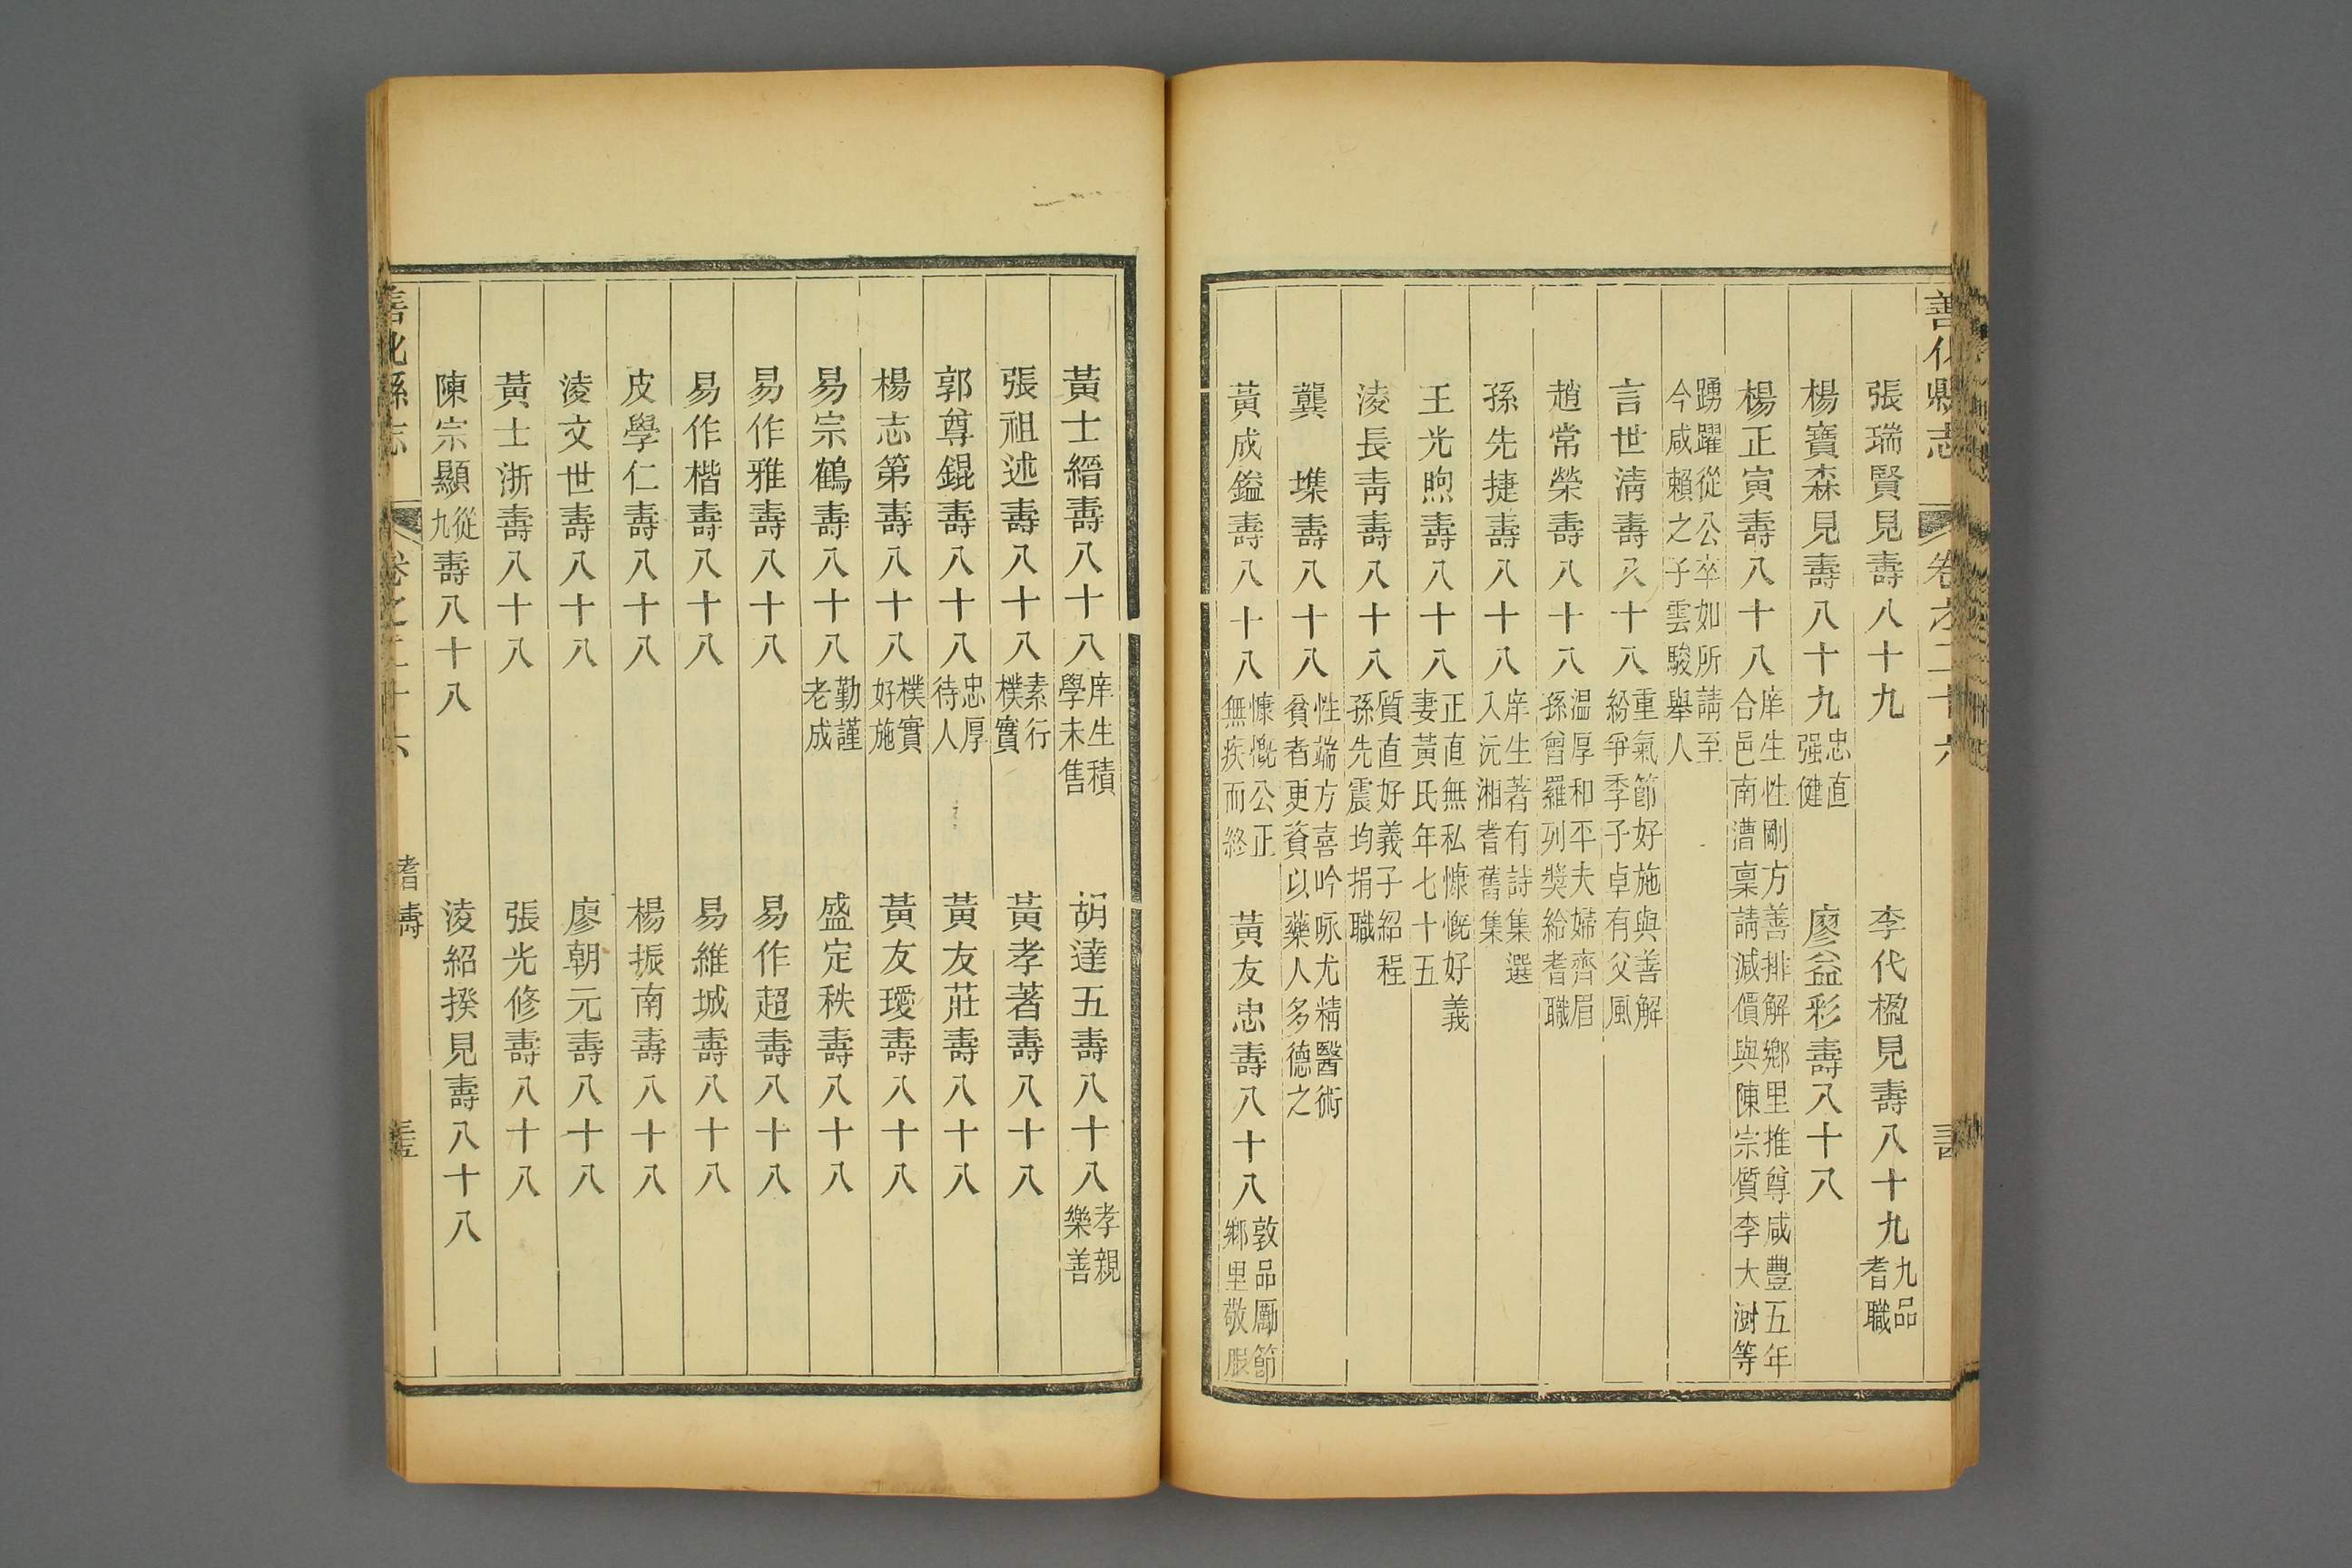 善化縣志 卷之二十六
張瑞賢見壽八十九 李代楹見壽八十九九品耆職
楊寶森見壽八十九忠直强健 廖益彩壽八十八
楊正寅壽八十八庠生性剛方善排解鄉里推尊咸豐五年合邑南漕稟請減價與陳宗質李大澍等
踴躍從公卒如所請至今咸賴之子雲駿舉人
言世清壽八十八重氣節好施與善解紛爭季子卓有父風
趙常榮壽八十八溫厚和平夫婦齊眉孫曾羅列獎給耆職
孫先捷壽八十八庠生著有詩集選入沅湘耆舊集
王光煦壽八十八正直無私慷慨好義妻黃氏年七十五
淩長靑壽八十八質直好義子紹程孫先震均捐職
龔 㙫壽八十八性端方喜吟咏尤精醫術貧者更資以藥人多德之
黃成鎰壽八十八慷慨公正無疾而終 黃友忠壽八十八敦品厲節鄉里敬服
黃士縉壽八十八庠生積學未售 胡達五壽八十八孝親樂善
張祖述壽八十八素行樸實 黃孝著壽八十八
郭尊錕壽八十八忠厚待人 黃友莊壽八十八
楊志第壽八十八樸實好施 黃友璦壽八十八
易宗鶴壽八十八勤謹老成 盛定秩壽八十八
易作雅壽八十八 易作超壽八十八
易作楷壽八十八 易維城壽八十八
皮學仁壽八十八 楊振南壽八十八
淩文世壽八十八 廖朝元壽八十八
黃士浙壽八十八 張光修壽八十八
陳宗顯從九壽八十八 淩紹揆見壽八十八
善化縣志 卷之二十六 耆壽 三五